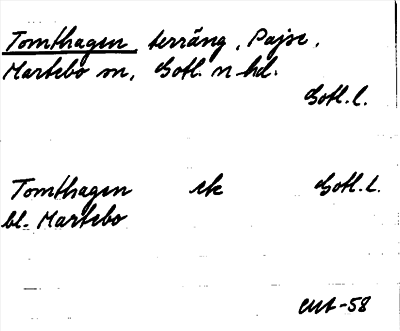 Tomthagen, terräng, Pajse,
Martebo sn, Gotl. n hd.
Gotl. l.
Tomthagen ek Gotl. l.
bl. Martebo
-58